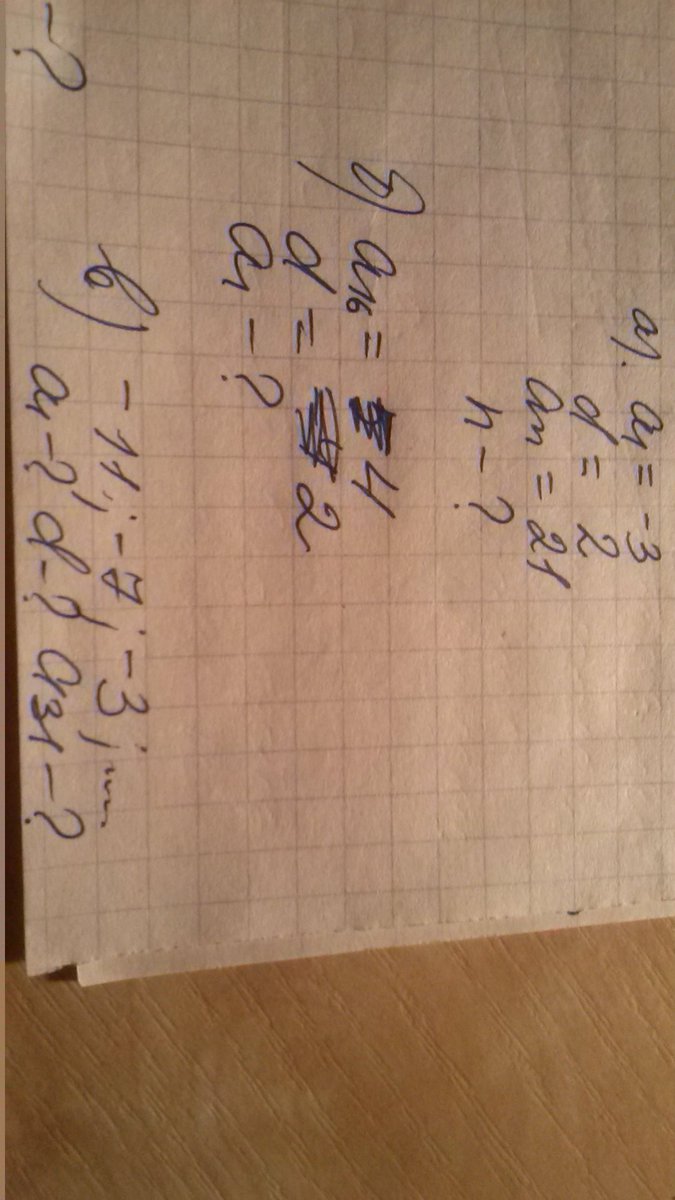 а). a₁ = -3
d = 2
aₙ = 21
n - ?
б) a₁₆ = 4
d = 2
a₁ - ?
в) -11; -7; -3; ....
a₁-?, d-?, a₃₁ - ?
-?